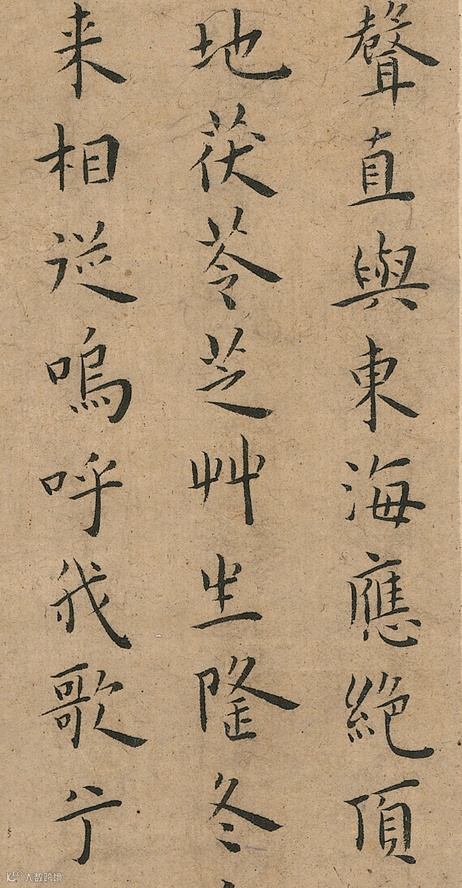 聲直與東海應絶頂
地茯苓芝艸坐隆冬
来相從嗚呼我歌兮